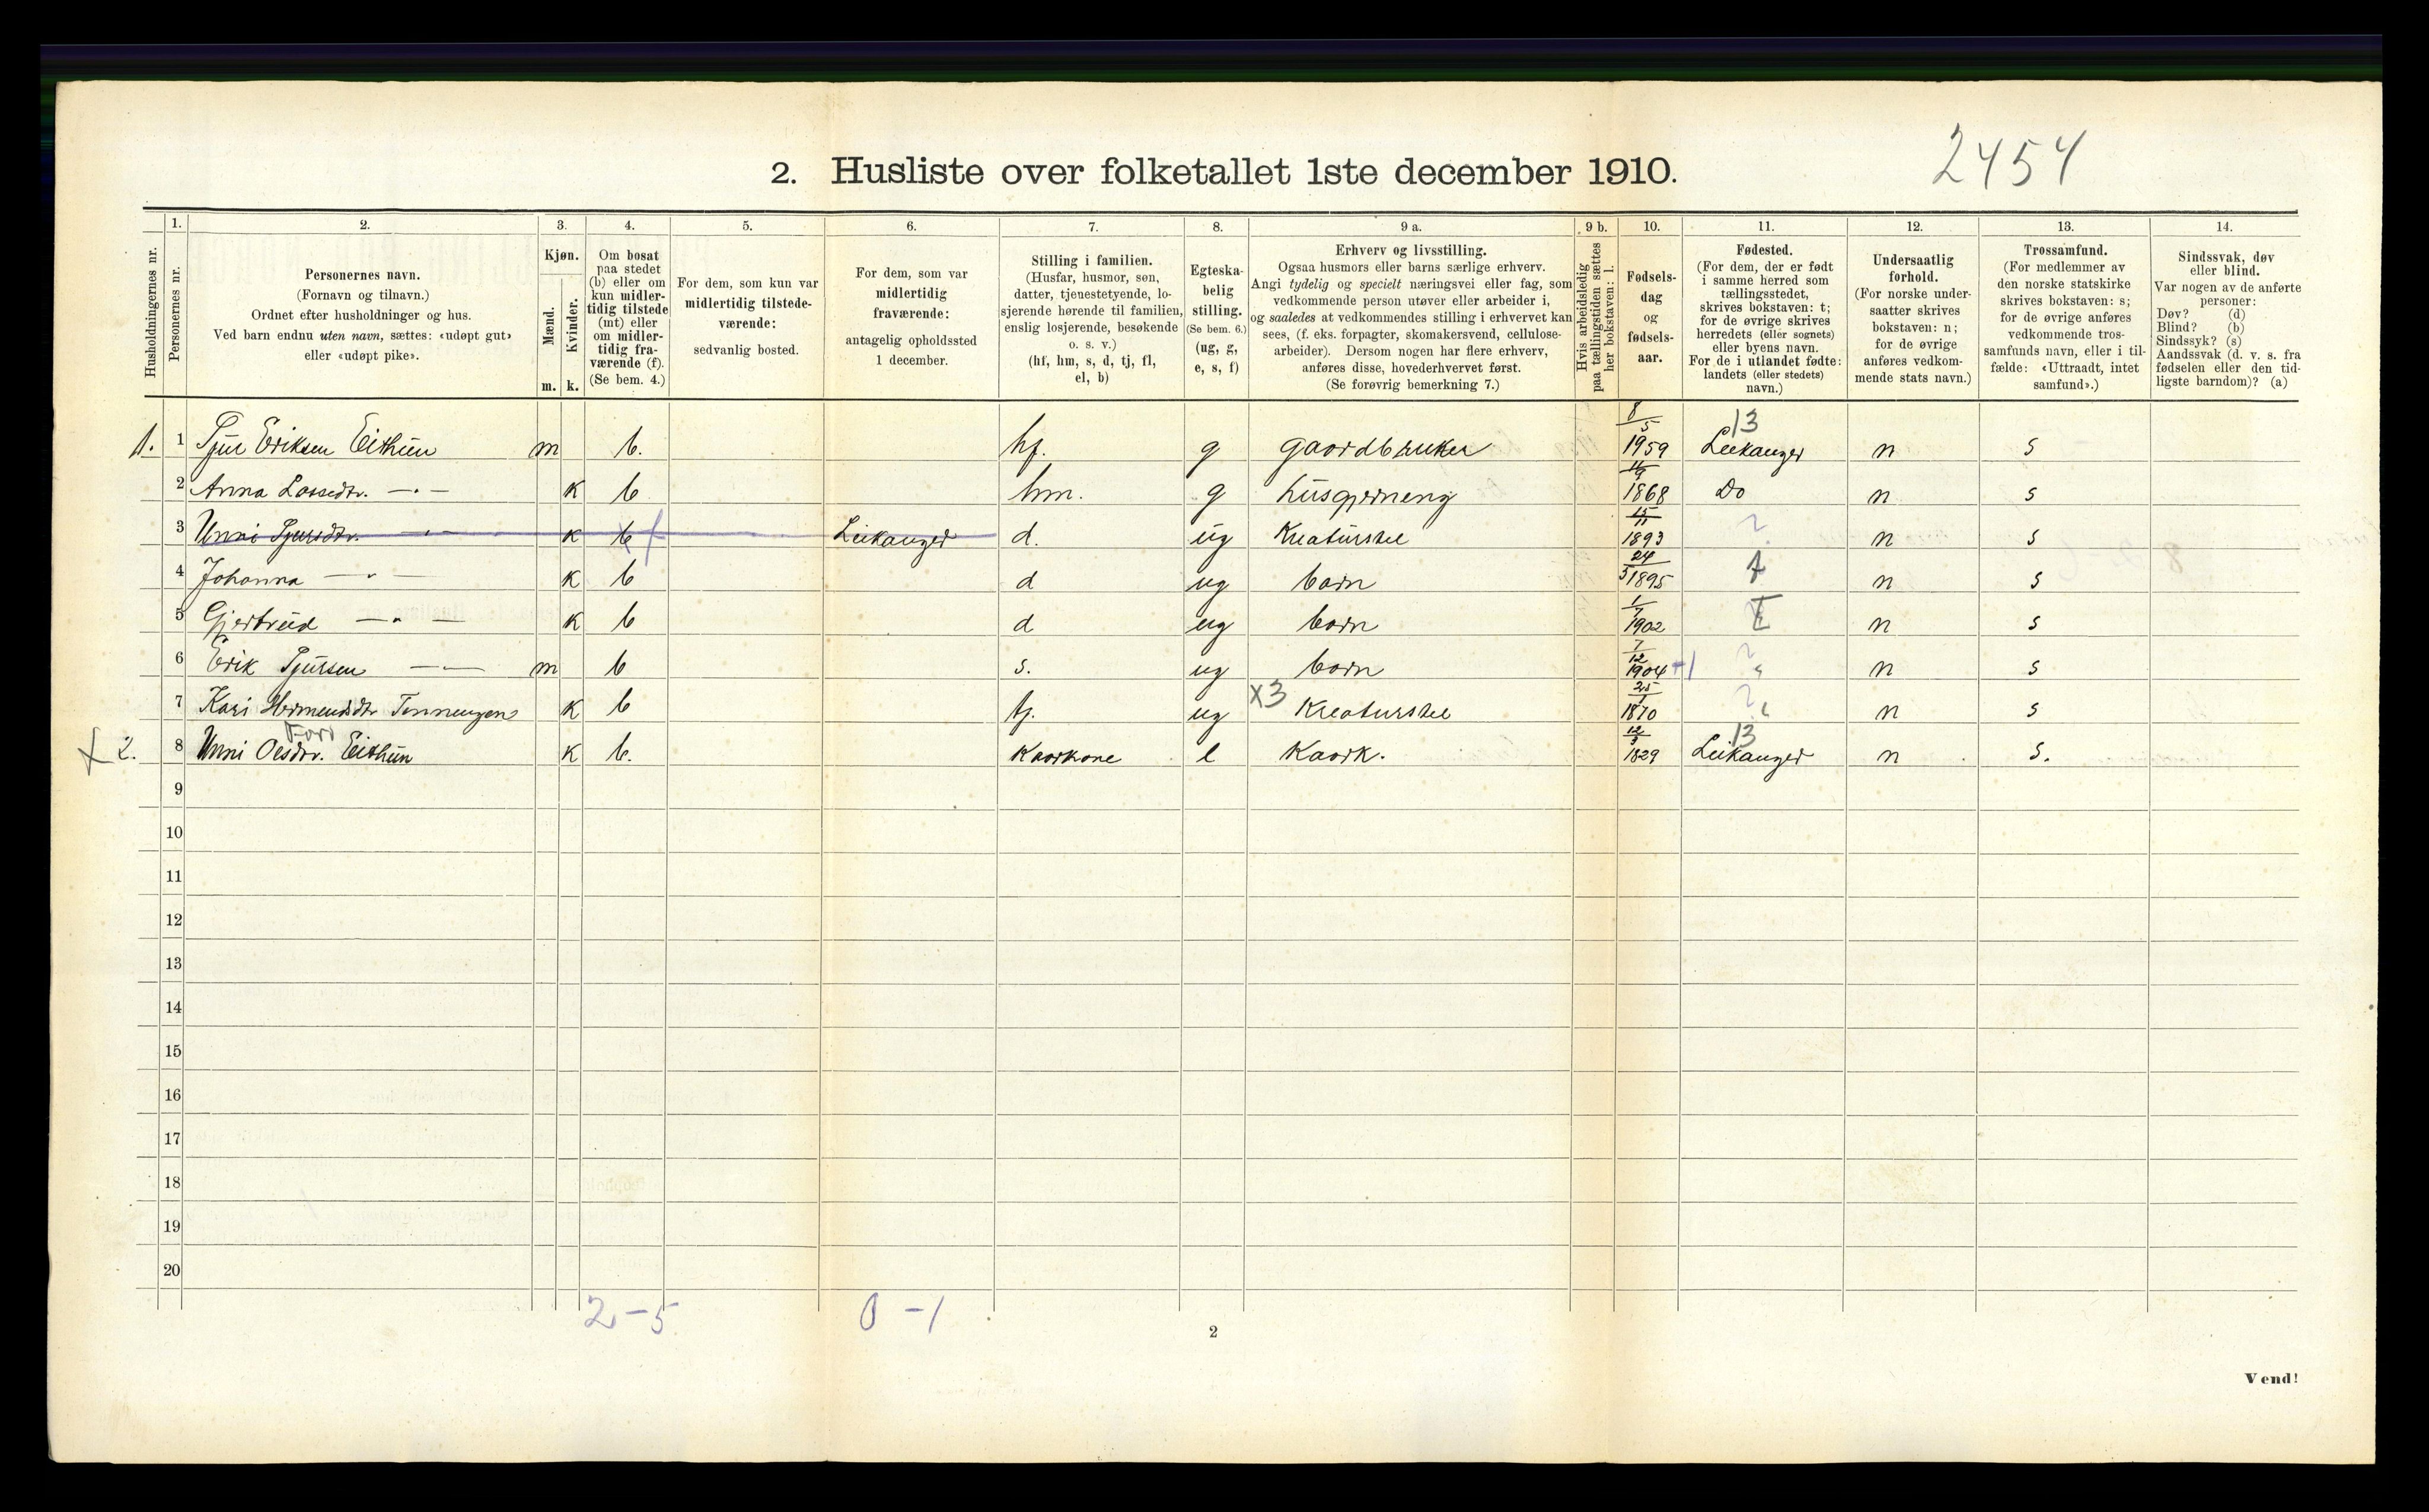 2454
2. Husliste over folketallet 1ste december 1910.
1. 2. 3. 4. 5. 6. 7. 8. 9 a. 9 b. 10. 11. 12. 13. 14.
Husholdningernes nr.
Personernes nr.
Personernes navn.
(Fornavn og tilnavn.)
Ordnet efter husholdninger og hus.
Ved barn endnu uten navn, sættes: «udøpt gut»
eller «udøpt pike».
Kjøn.
Mænd.
Kvinder.
m. k.
Om bosat
paa stedet
(b) eller om
kun midler-
tidig tilstede
(mt) eller
om midler-
tidig fra-
værende (f).
(Se bem. 4.)
For dem, som kun var
midlertidig tilstede-
værende:
sedvanlig bosted.
For dem, som var
midlertidig
fraværende:
antagelig opholdssted
1 december.
Stilling i familien.
(Husfar, husmor, søn,
datter, tjenestetyende, lo-
sjerende hørende til familien,
enslig losjerende, besøkende
o. s. v.)
(hf, hm, s, d, tj, fl,
el, b)
Egteska-
belig
stilling.
(Se bem. 6.)
(ug, g,
e, s, f)
Erhverv og livsstilling.
Ogsaa husmors eller barns særlige erhverv.
Angi tydelig og specielt næringsvei eller fag, som
vedkommende person utøver eller arbeider i,
og saaledes at vedkommendes stilling i erhvervet kan
sees, (f. eks. forpagter, skomakersvend, cellulose-
arbeider). Dersom nogen har flere erhverv,
anføres disse, hovederhvervet først.
(Se forøvrig bemerkning 7.)
Hvis arbeidsledig
paa tællingstiden sættes
her bokstaven: l.
Fødsels-
dag
og
fødsels-
aar.
Fødested.
(For dem, der er født
i samme herred som
tællingsstedet,
skrives bokstaven: t;
for de øvrige skrives
herredets (eller sognets)
eller byens navn.
For de i utlandet fødte:
landets (eller stedets)
navn.)
Undersaatlig
forhold.
(For norske under-
saatter skrives
bokstaven: n;
for de øvrige
anføres vedkom-
mende stats navn.)
Trossamfund.
(For medlemmer av
den norske statskirke
skrives bokstaven: s;
for de øvrige anføres
vedkommende tros-
samfunds navn, eller i til-
fælde: «Uttraadt, intet
samfund».)
Sindssvak, døv
eller blind.
Var nogen av de anførte
personer:
Døv? (d)
Blind? (b)
Sindssyk? (s)
Aandssvak (d. v. s. fra
fødselen eller den tid-
ligste barndom)? (a)
1. 1 Tjur Eriksen Eithun m b. hf. g gaordbruker 8/5 1959 13 Leikanger n s
2 Anna Lassedtr. —"— k b hm. g husgjerneng 1868 Do n s
3 Unni Tjursdtr. —"— k b f Leikanger d. ug Kreaturstel 15/11 1893 n s
4 Johanna —"— k b d ug barn 24/5 1895 t n s
5 Gjertrud —"— k b d ug barn 1/7 1902 t n s
6 Erik Tjursen —"— m b s. ug barn 7/12 1904 -1 " n s
7 Kari Hermundsdtr k b tj. ug x3 Kreaturstel 25/1 1870 " n s
Ford
2. 8 Unni Olsdtr. Eithun k b. Kaarkone e Kaark. 12/3 1829 13 Leikanger n s.
9
10
11
12
13
14
15
16
17
18
19
20
2-5 0-1
2
Vend!